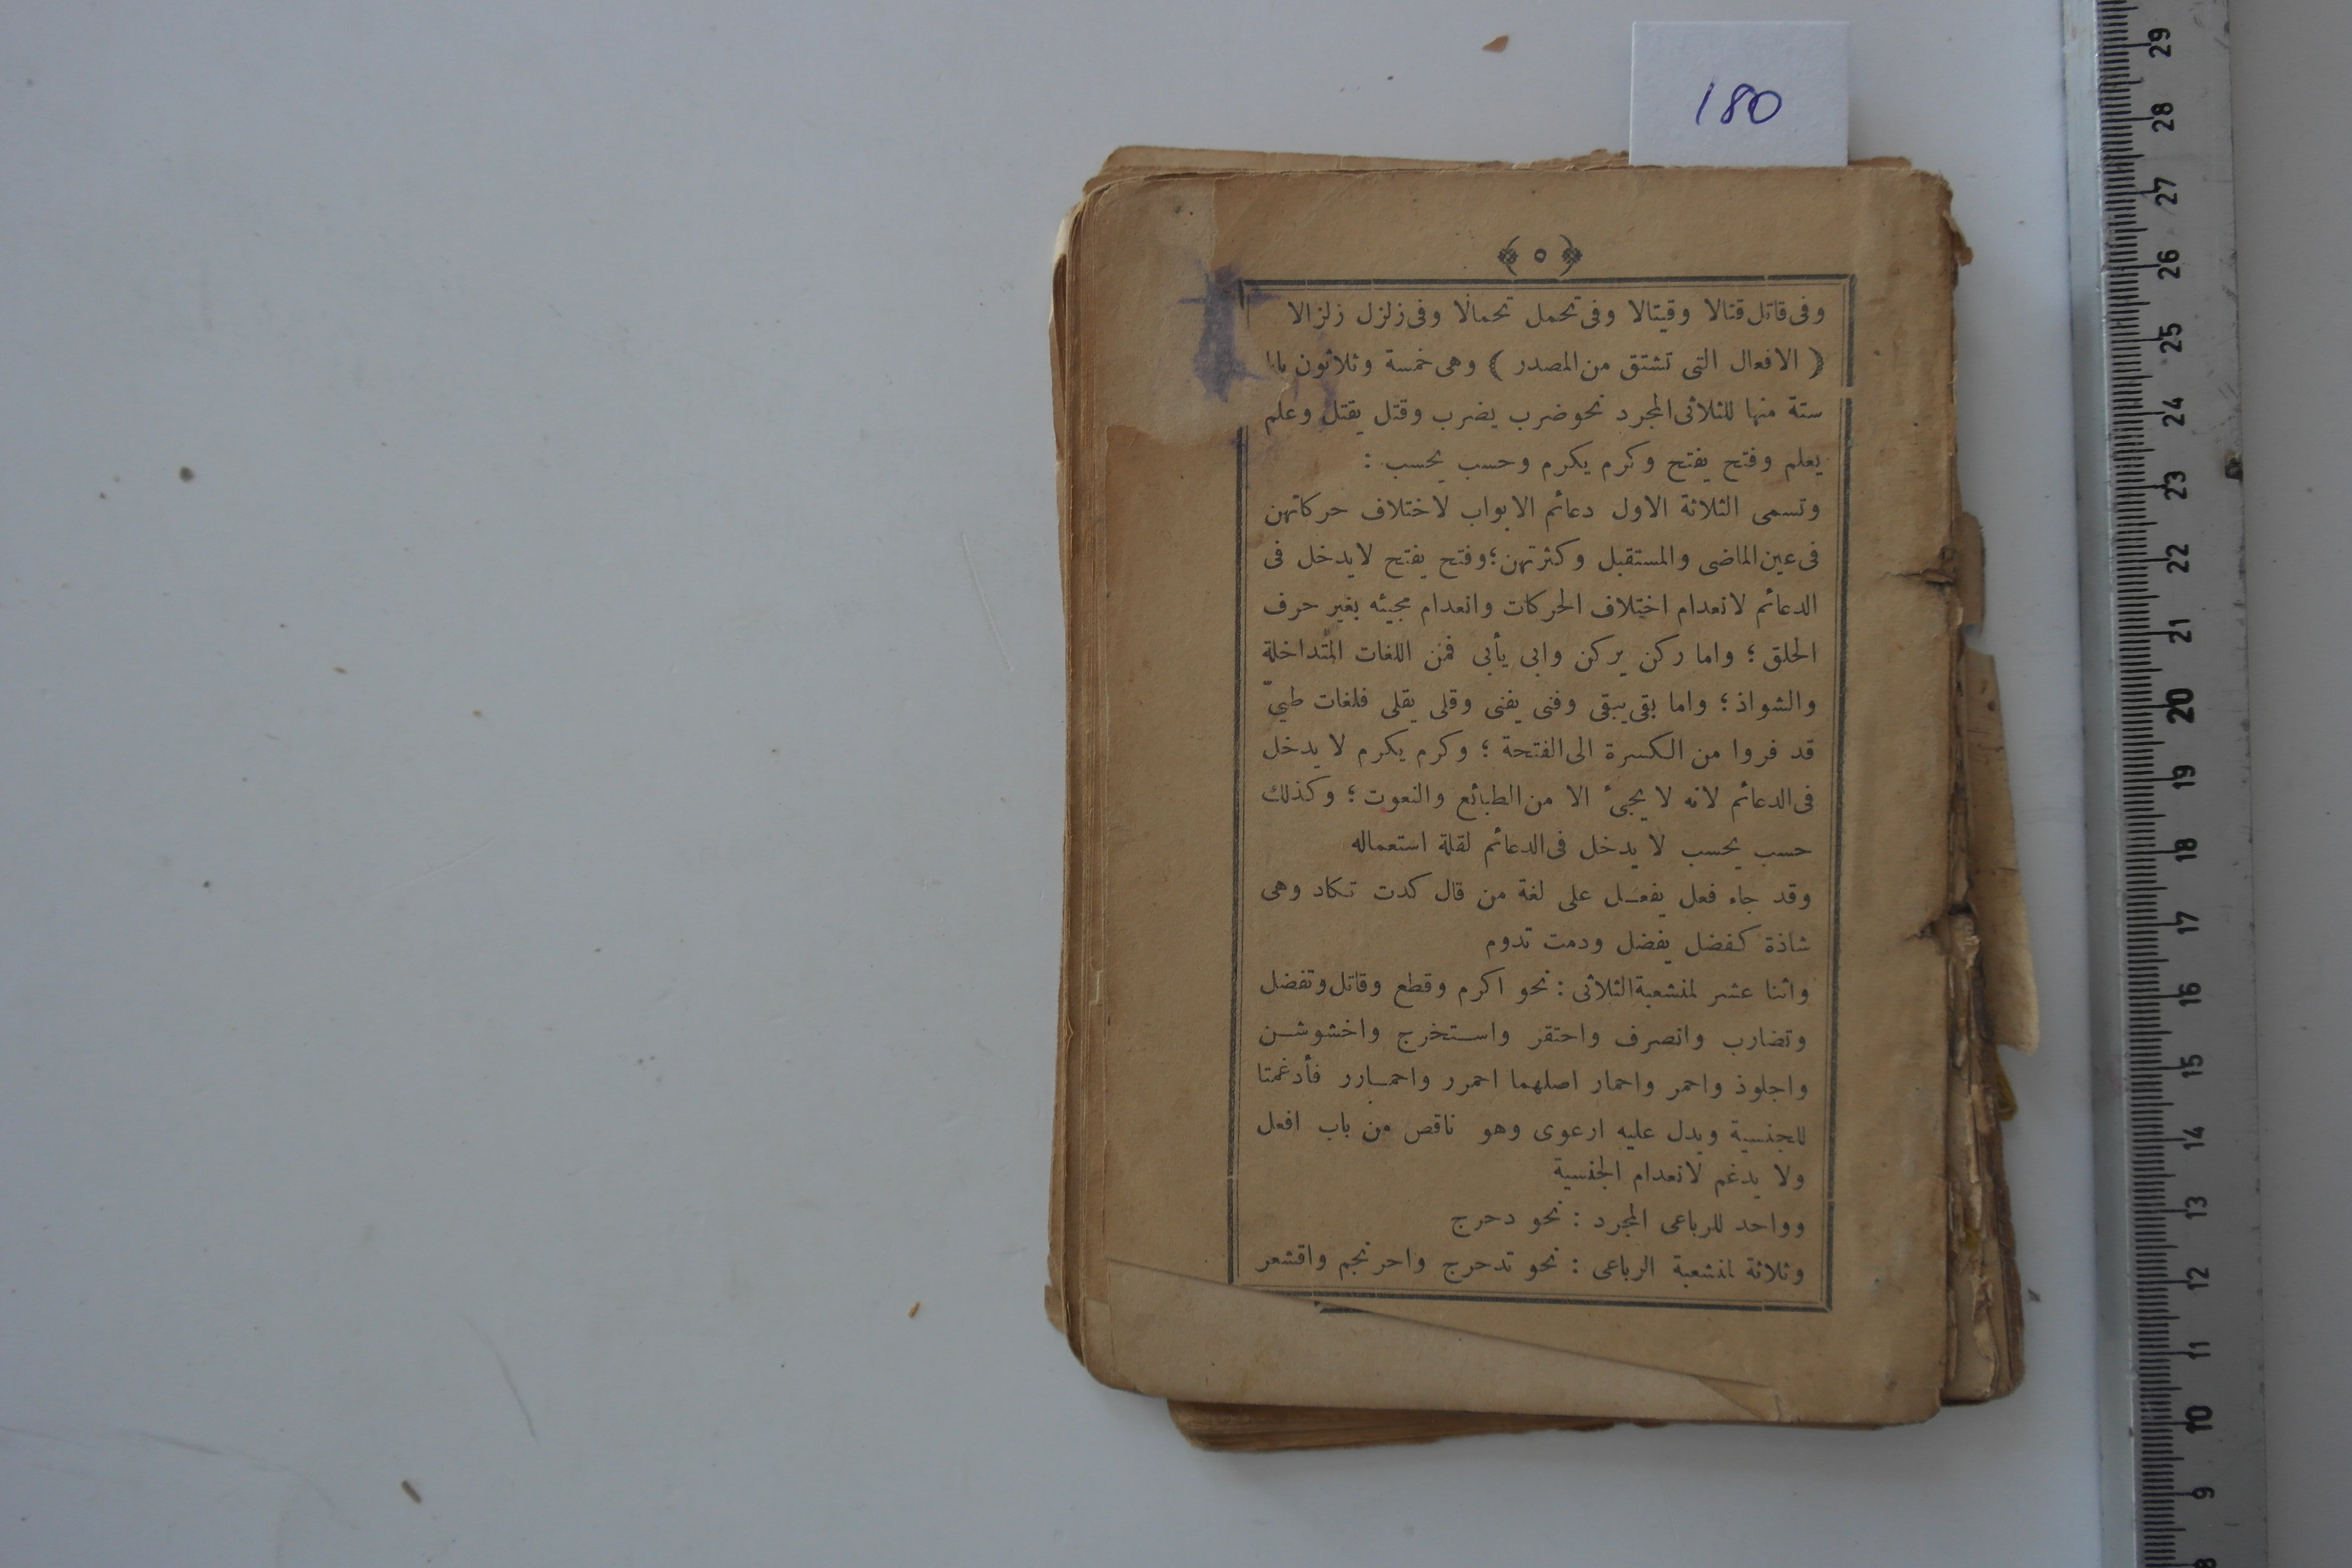 180
﴿ ٥ ﴾
وفى قاتل قتالا وقيتالا وفى تحمل تحمالا وفى زلزل زلزالا
﴿ الافعال التى تشتق من المصدر ﴾ وهى خمسة وثلاثون بابا
ستة منها للثلاثى المجرد نحو ضرب يضرب وقتل يقتل وعلم
يعلم وفتح يفتح وكرم يكرم وحسب يحسب :
وتسمى الثلاثة الاول دعائم الابواب لاختلاف حركاتهن
فى عين الماضى والمستقبل وكثرتهن ؛ وفتح يفتح لا يدخل فى
الدعائم لانعدام اختلاف الحركات وانعدام مجيئه بغير حرف
الحلق ؛ واما ركن يركن وابى يأبى فمن اللغات المتداخلة
والشواذ ؛ واما بقى يبقى وفنى يفنى وقلى يقلى فلغات طىّ
قد فروا من الكسرة الى الفتحة ؛ وكرم يكرم لا يدخل
فى الدعائم لانه لا يجىء الا من الطبائع والنعوت ؛ وكذلك
حسب يحسب لا يدخل فى الدعائم لقلة استعماله
وقد جاء فعل يفعــل على لغة من قال كدت تكاد وهى
شاذة كفضل يفضل ودمت تدوم
واثنا عشر لمنشعبة الثلاثى : نحو اكرم وقطع وقاتل وتفضل
وتضارب وانصرف واحتقر واســتخرج واخشوشــن
واجلوذ واحمر واحمار اصلهما احمرر واحمــارر فأدغمتا
للجنسية ويدل عليه ارعوى وهو ناقص من باب افعل
ولا يدغم لانعدام الجنسية
وواحد للرباعى المجرد : نحو دحرج
وثلاثة لمنشعبة الرباعى : نحو تدحرج واحرنجم واقشعر
29
28
27
26
25
24
23
22
21
20
19
18
17
16
15
14
13
12
11
10
9
8